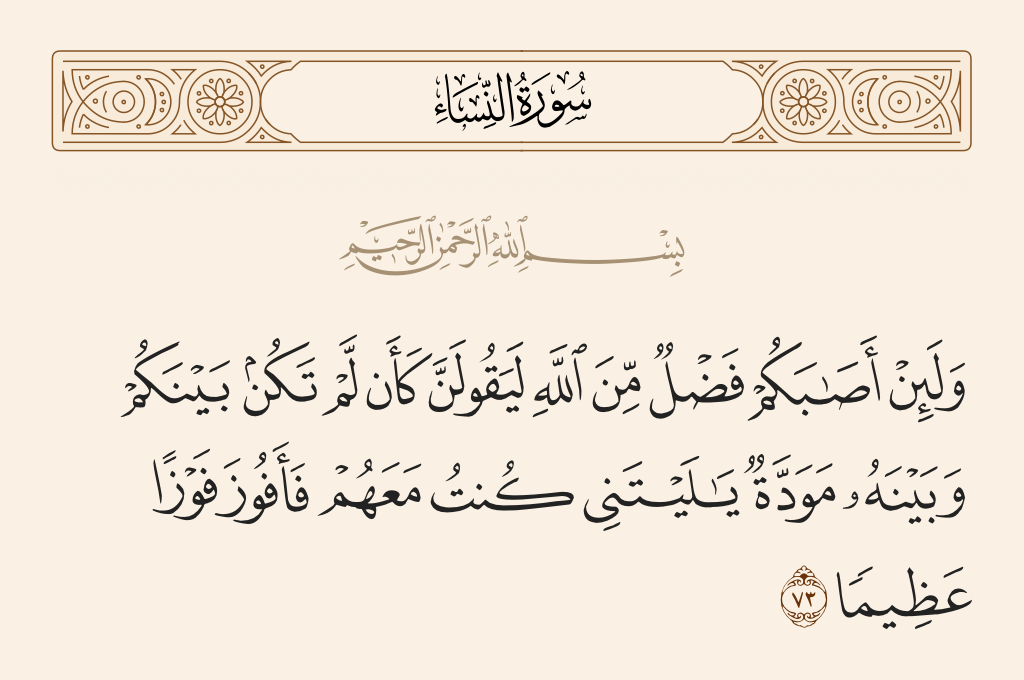 سُورَةُ النِّسَاءِ
بِسْمِ ٱللَّهِ ٱلرَّحْمَٰنِ ٱلرَّحِيمِ
وَلَئِنْ أَصَٰبَكُمْ فَضْلٌ مِّنَ ٱللَّهِ لَيَقُولَنَّ كَأَن لَّمْ تَكُنۢ بَيْنَكُمْ
وَبَيْنَهُۥ مَوَدَّةٌ يَٰلَيْتَنِى كُنتُ مَعَهُمْ فَأَفُوزَ فَوْزًا
عَظِيمًا ٧٣